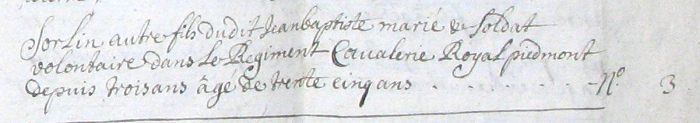 Sorlin autre fils dudit Jeanbaptiste marié & soldat
volontaire dans le Regiment Cavalerie Royal piedmont
depuis trois ans âgé de trente cinq ans . . . . . . . N.º 3